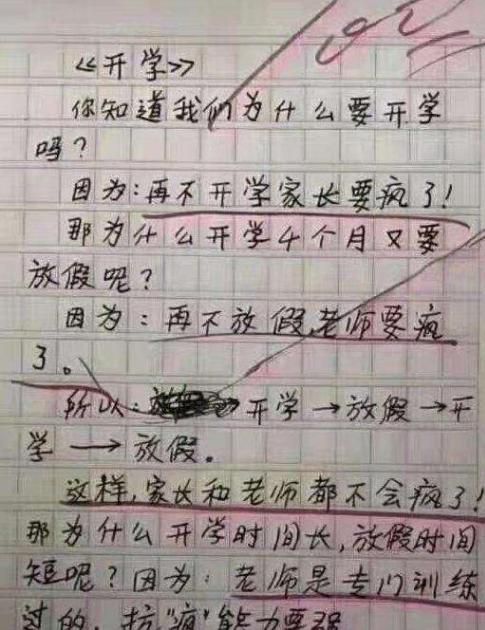 《开学》
你知道我们为什么要开学
吗?
因为:再不开学家长要疯了!
那为什么开学4个月又要
放假呢?
因为:再不放假,老师要疯
了。
所以:开学→放假→开
学→放假。
这样,家长和老师都不会疯了!
那为什么开学时间长,放假时间
短呢?因为:老师是专门训练
过的,抗"疯"能力要强